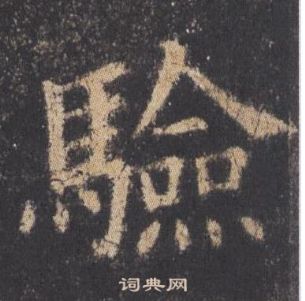 驗
词典网